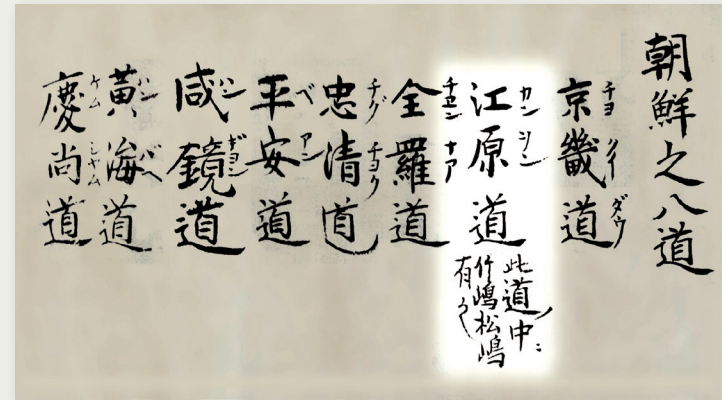 朝鮮之八道
京畿道
ダウ
江原道
カン
此道ノ中ニ
竹嶋松嶋
有之
全羅道
ナア
忠清道
チグ チヨク
平安道
ベアン
咸鏡道
ハン ギヨン
黄海道
慶尚道
ケム シヤム